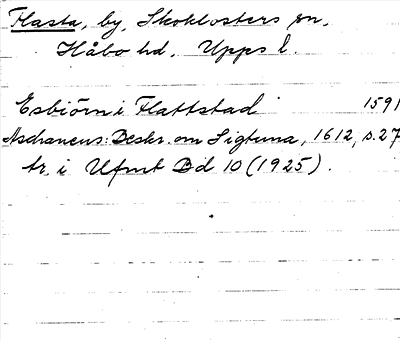 Flasta, by, Skoklosters sn,
Håbo hd, Upps l.
Esbiörn i Flattstad 1591
Aschaneus: Beskr. om Sigtuna, 1612, s. 27
tr. i Ufmt Bd 10 (1925).